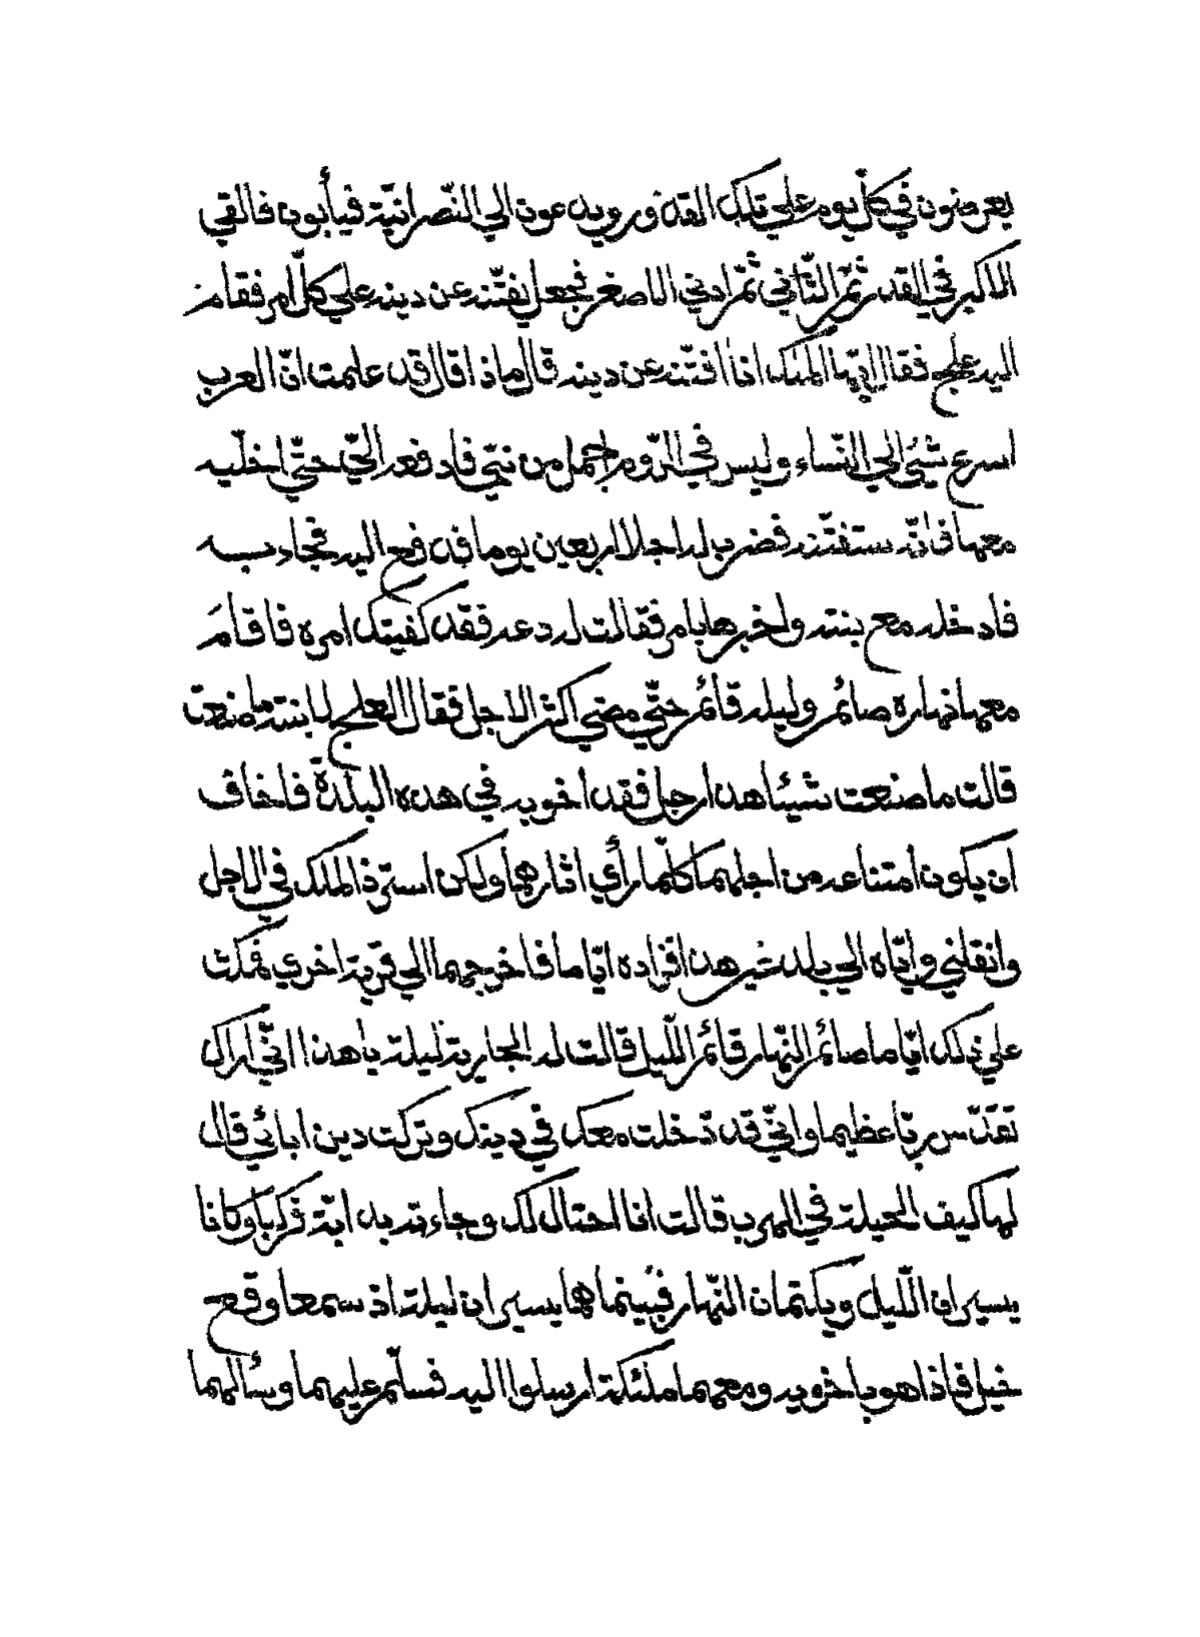 يعرضون في كلّ يوم علي تلك القدور ويدعون الي النّصرانيّة فيأبون فالقي
الاكبر في القدر ثمّ الثّاني ثمّ ادني الاصغر فجعل يفتّنه عن دينه علي كلّ امر فقام
اليه علج فقال ايّها الملك انا افتّنه عن دينه قال ماذا قال قد علمت انّ العرب
اسرع شئي الي النّساء وليس في الرّوم اجمل من بنتي فادفعه اليّ حتّي اخليه
معها فانّه ستفتّنه فضرب له اجلا اربعين يوما فدفع اليه فجاء به
فادخله مع بنته واخبرها بامر فقالت له دعه فقد كفيتك امره فاقام
معها نهاره صائم وليله قائم حتّي مضي اكثر الاجل فقال العلج لابنته ما صنعت
قالت ما صنعت شيئا هذا رجل فقد اخويه في هذه البلدة فاخاف
ان يكون امتناعه من اجلهما كلّما رأي اثارهما ولكن استزد الملك في الاجل
وانقلني وايّاه الي بلد غير هذا فزاده ايّاما فاخرجهما الي قرية اخري فمكث
علي ذلك ايّاما صائم النّهار قائم اللّيل قالت له الجارية ليلة يا هذا انّي اراك
تقدّس ربّا عظيما وانّي قد دخلت معك في دينك وتركت دين ابائي قال
لها كيف الحيلة في الهرب قالت انا احتال لك وجاءته بدابّة فركبا وكانا
يسيران اللّيل ويكتمان النّهار فبينما هما يسيران ليلة اذ سمعا وقع
خيل فاذا هو باخويه ومعهما ملئكة ارسلوا اليه فسلّم عليهما وسألهما